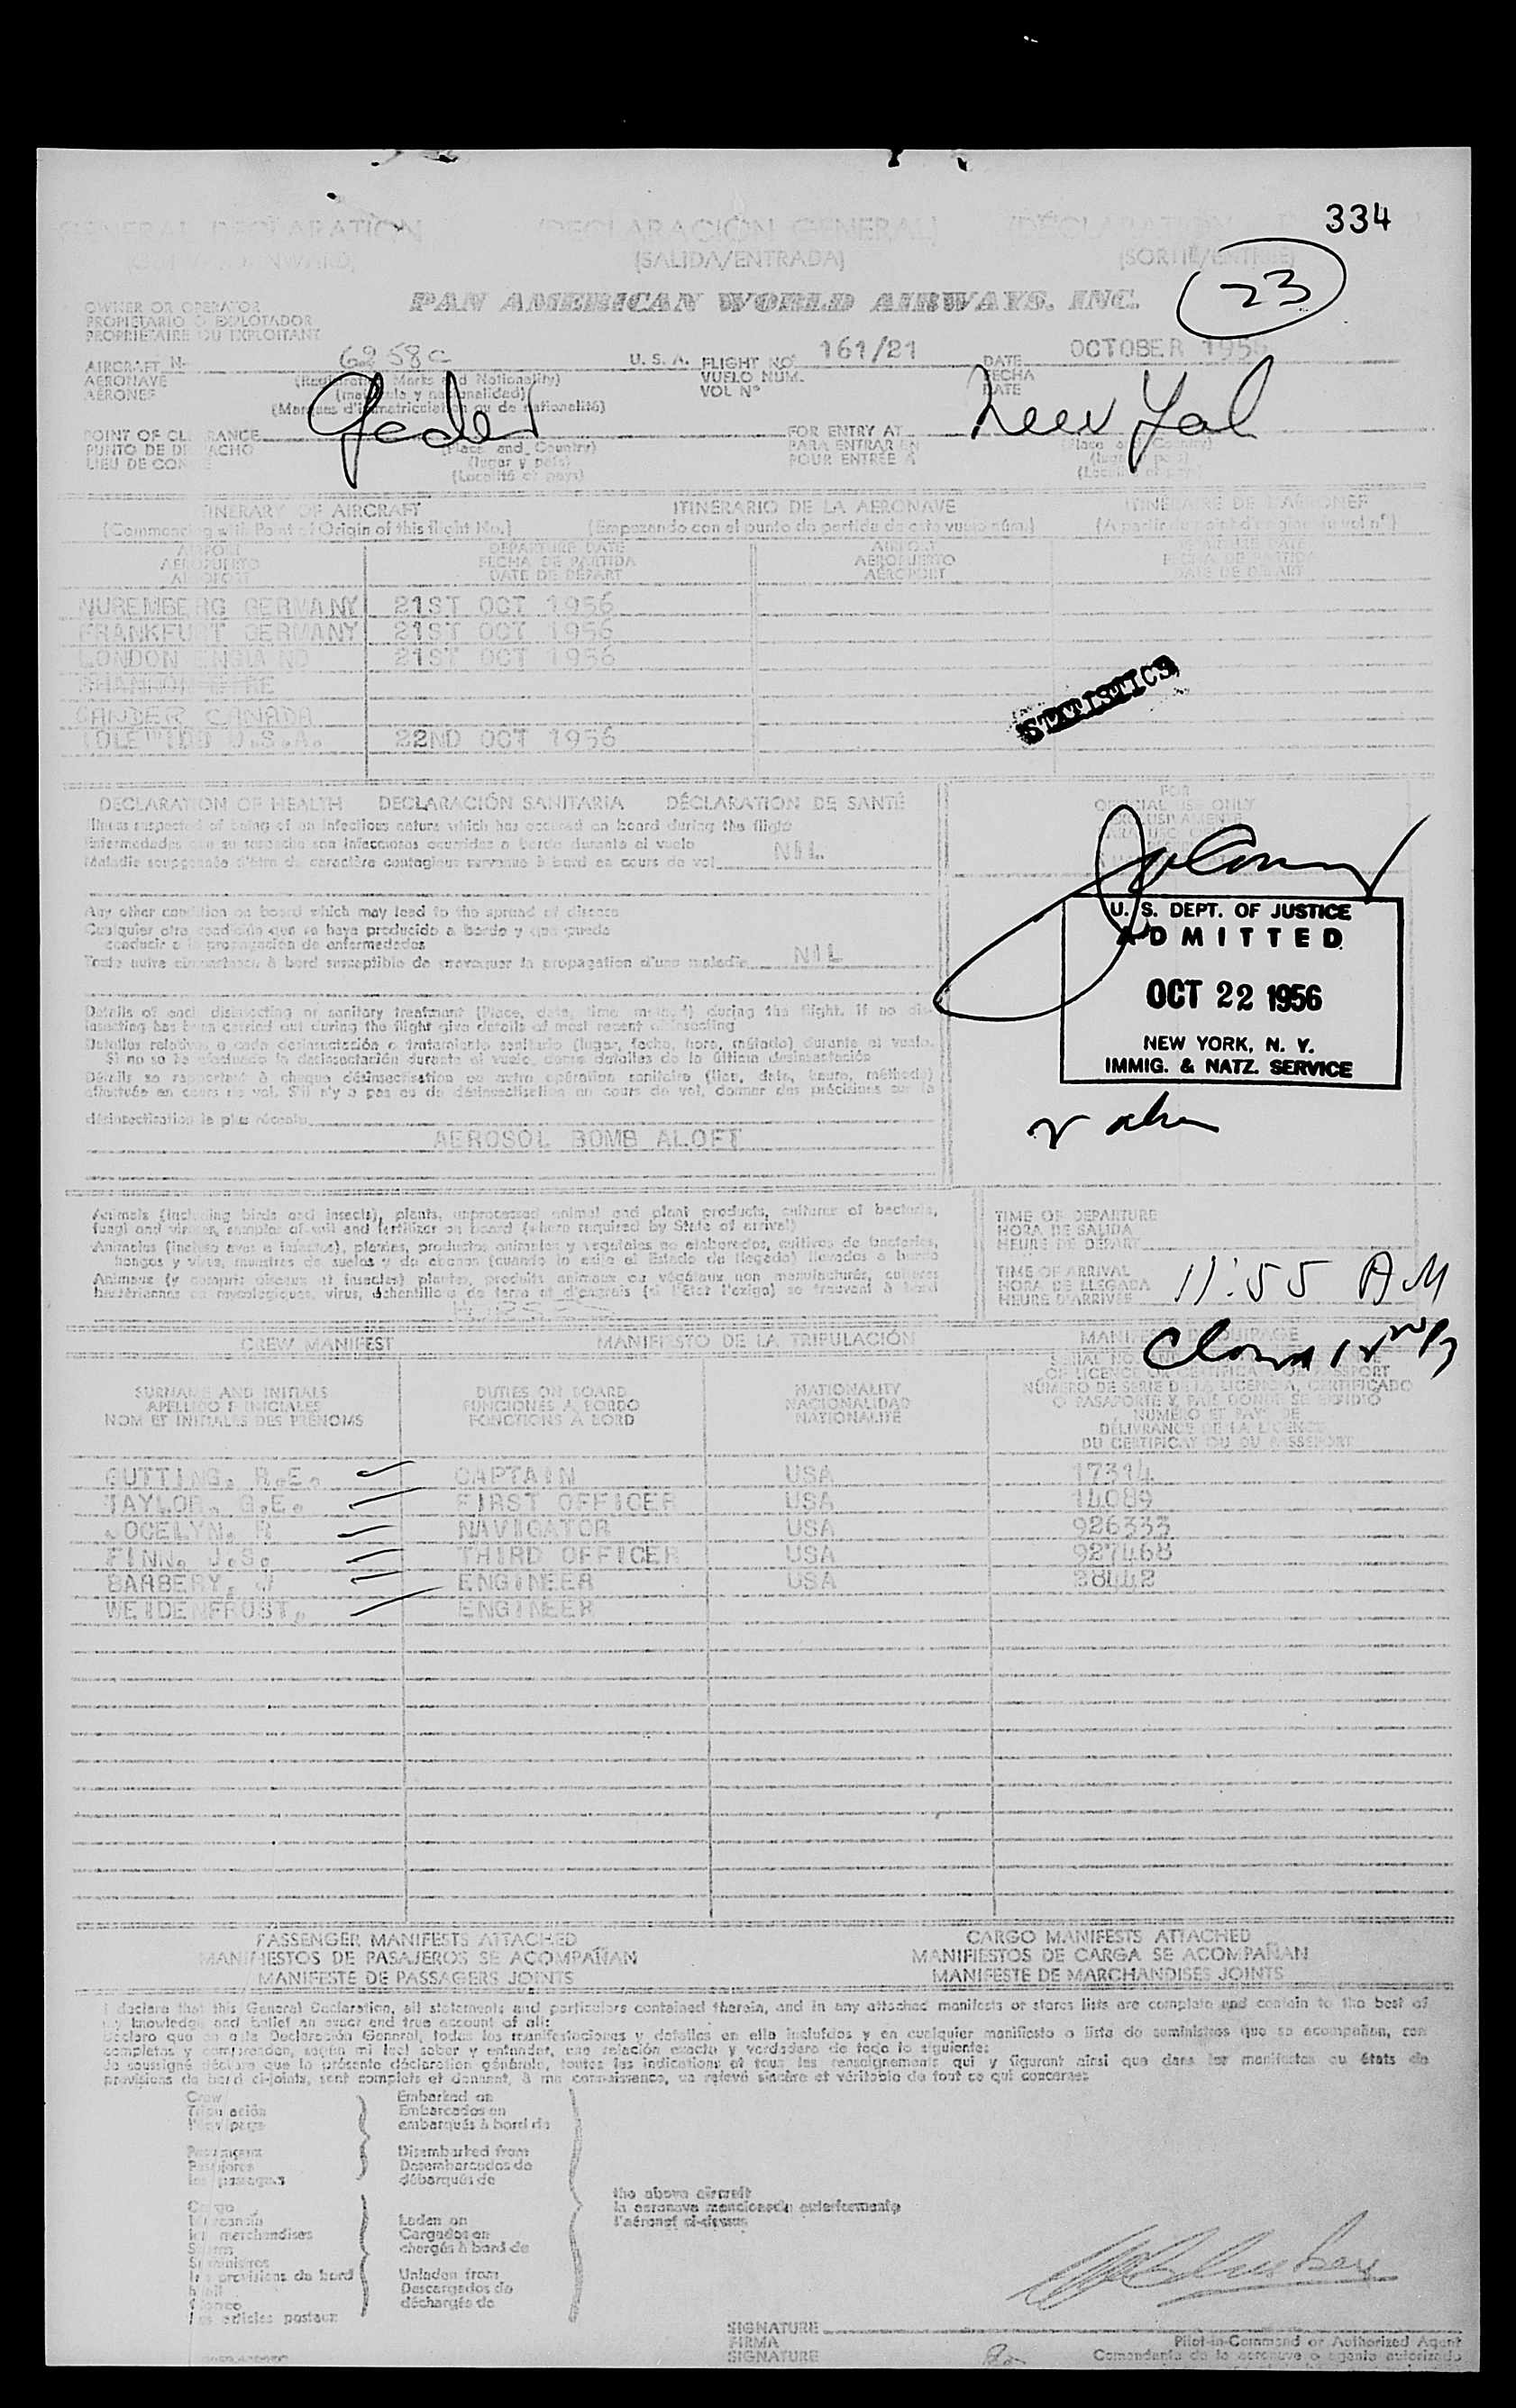 334
GENERAL DECLARATION (DECLARACIÓN GENERAL)
(SALIDA/ENTRADA) (SORTIE/ENTRÉE)
23
OWNER OR OPERATOR
PROPIETARIO O EXPLOTADOR
PROPRIÉTAIRE OU EXPLOITANT
PAN AMERICAN WORLD AIRWAYS, INC.
AIRCRAFT N- U. S. A. FLIGHT NO. 161/21 DATE OCTOBER 1956
AERONAVE (Registration Marks and Nationality) VUELO NÚM. FECHA
AÉRONEF (matrícula y nacionalidad) VOL Nº DATE
(Marques d'immatriculation ou de nationalité)
POINT OF CLEARANCE FOR ENTRY AT New
PUNTO DE DESPACHO (Place and Country) PARA ENTRAR EN (Place and Country)
LIEU DE (lugar y país) POUR ENTRÉE À
ITINERARY OF AIRCRAFT ITINERARIO DE LA AERONAVE ITINÉRAIRE DE L'AÉRONEF
(Commencing with Point of Origin of this flight No.) (Empezando con el punto de partida de este vuelo núm.)
AIRPORT DEPARTURE DATE
AEROPUERTO FECHA DE PARTIDA AEROPUERTO
DATE DE DÉPART AÉROPORT
NUREMBERG GERMANY 21ST OCT 1956
FRANKFURT GERMANY 21ST OCT 1956
LONDON ENGLAND 21ST OCT 1956
SHANNON EIRE
GANDER CANADA
IDLEWILD U.S.A. 22ND OCT 1956
STATISTICS
DECLARATION OF HEALTH DECLARACIÓN SANITARIA DÉCLARATION DE SANTÉ
FOR
OFFICIAL USE ONLY
Illness suspected of being of an infectious nature which has occurred on board during the flight
Enfermedades que se sospecha son infecciosas ocurridas a bordo durante el vuelo
Maladie soupçonnée d'être de caractère contagieux survenue à bord en cours de vol NIL
Any other condition on board which may lead to the spread of disease
Cualquier otra condición que se haya producido a bordo y que pueda
conducir a la propagación de enfermedades
Toute autre circonstance à bord susceptible de provoquer la propagation d'une maladie NIL
U. S. DEPT. OF JUSTICE
ADMITTED
OCT 22 1956
NEW YORK, N. Y.
IMMIG. & NATZ. SERVICE
Details of each disinsecting or sanitary treatment (Place, date, time method) during the flight. If no dis-
insecting has been carried out during the flight give details of most recent disinsecting
Detalles relativos a cada desinsectación o tratamiento sanitario (lugar, fecha, hora, método) durante el vuelo.
Si no se ha efectuado la desinsectación durante el vuelo, dense detalles de la última desinsectación
Détails se rapportant à chaque désinsectisation ou autre opération sanitaire (lieu, date, heure, méthode)
effectuée en cours de vol. S'il n'y a pas eu de désinsectisation en cours de vol, donner des précisions sur la
désinsectisation la plus récente
AEROSOL BOMB ALOFT
Animals (including birds and insects), plants, unprocessed animal and plant products, cultures of bacteria,
fungi and viruses, samples of soil and fertilizer on board (where required by State of arrival)
Animales (incluso aves e insectos), plantas, productos animales y vegetales no elaborados, cultivos de bacterias,
hongos y virus, muestras de suelos y de abonos (cuando lo exija el Estado de llegada) llevados a bordo
Animaux (y compris oiseaux et insectes) plantes, produits animaux ou végétaux non manufacturés, cultures
bactériennes ou mycologiques, virus, échantillons de terre et d'engrais (si l'État l'exige) se trouvant à bord
TIME OF DEPARTURE
HORA DE SALIDA
HEURE DE DÉPART
TIME OF ARRIVAL
HORA DE LLEGADA
HEURE D'ARRIVÉE 11:55 AM
CREW MANIFEST MANIFIESTO DE LA TRIPULACIÓN
SURNAME AND INITIALS DUTIES ON BOARD NATIONALITY
APELLIDO E INICIALES FUNCIONES A BORDO NACIONALIDAD
NOM ET INITIALES DES PRÉNOMS FONCTIONS À BORD NATIONALITÉ
OF LICENCE OR CERTIFICATE OR PASSPORT
NÚMERO DE SERIE DE LA LICENCIA, CERTIFICADO
O PASAPORTE Y PAÍS DONDE SE EXPIDIÓ
NUMÉRO ET PAYS DE
DÉLIVRANCE DE LA LICENCE
DU CERTIFICAT OU DU PASSEPORT
CUTTING, R.E. CAPTAIN USA 17314
TAYLOR, G.E. FIRST OFFICER USA 14089
JOCELYN, R NAVIGATOR USA 926333
FINN, J.S. THIRD OFFICER USA 927468
BARBERY, J ENGINEER USA 28442
WEIDENFROST, ENGINEER
PASSENGER MANIFESTS ATTACHED CARGO MANIFESTS ATTACHED
MANIFIESTOS DE PASAJEROS SE ACOMPAÑAN MANIFIESTOS DE CARGA SE ACOMPAÑAN
MANIFESTE DE PASSAGERS JOINTS MANIFESTE DE MARCHANDISES JOINTS
I declare that this General Declaration, all statements and particulars contained therein, and in any attached manifests or stores lists are complete and contain to the best of
my knowledge and belief an exact and true account of all:
Declaro que en esta Declaración General, todas las manifestaciones y detalles en ella incluidos y en cualquier manifiesto o lista de suministros que se acompañan, son
completos y comprenden, según mi leal saber y entender, una relación exacta y verdadera de todo lo siguiente:
Je soussigné déclare que la présente déclaration générale, toutes les indications et tous les renseignements qui y figurent ainsi que dans les manifestes ou états de
provisions de bord ci-joints, sont complets et donnent, à ma connaissance, un relevé sincère et véritable de tout ce qui concerne:
Crew Embarked on
Tripulación Embarcados en
l'équipage embarqués à bord de
Passengers Disembarked from
Pasajeros Desembarcados de
les passagers débarqués de
the above aircraft
la aeronave mencionada anteriormente
l'aéronef ci-dessus
Cargo
Mercancía Laden on
les merchandises Cargados en
Stores chargés à bord de
Suministros
les provisions de bord Unladen from
Mail Descargados de
Correo déchargés de
les articles postaux
SIGNATURE
FIRMA Pilot-in-Command or Authorized Agent
SIGNATURE Comandante de la aeronave o agente autorizado